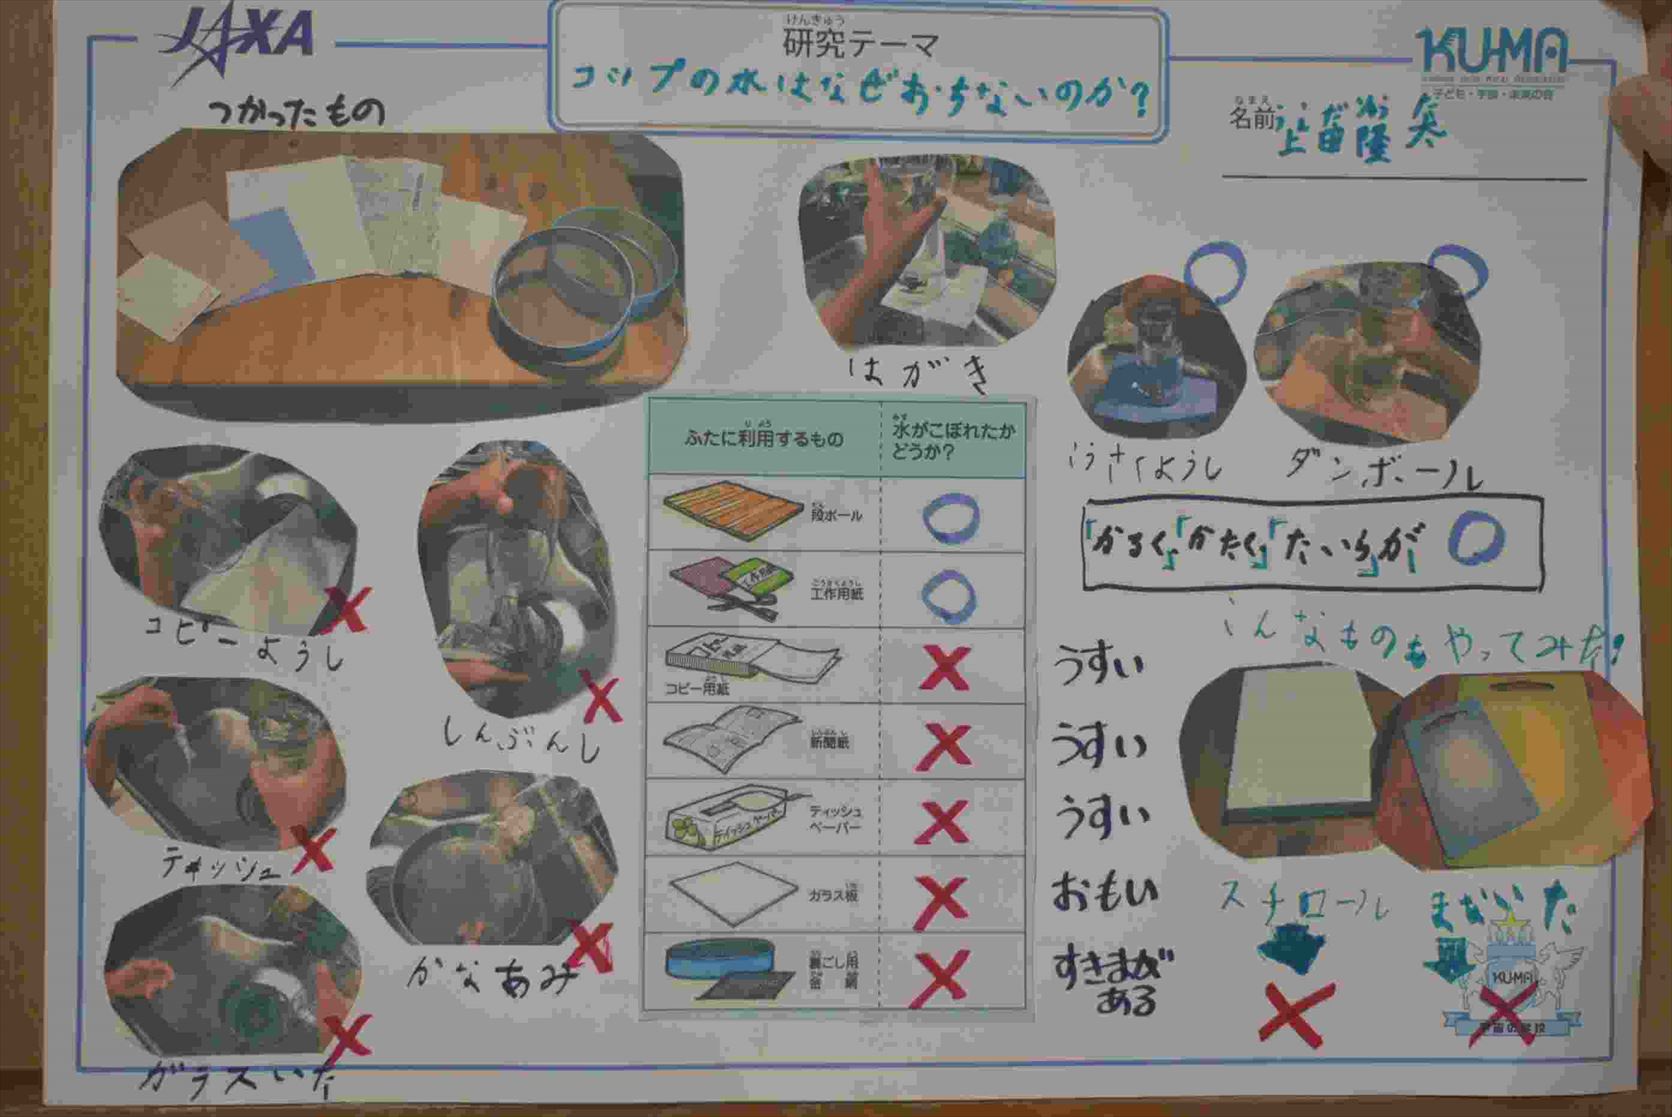 JAXA
けんきゅう
研究テーマ
コップの水はなぜおちないのか?
KU-MA
子ども・宇宙・未来の会
なまえ
名前
つかったもの
はがき
こうさくようし
ダンボール
「かるく」「かたく」「たいら」が○
こんなものもやってみた!
コピーようし
しんぶんし
ティッシュ
かなあみ
ガラスいた
りよう
ふたに利用するもの
みず
水がこぼれたか
どうか?
だん
段ボール ○
こうさくようし
工作用紙 ○
コピー用紙 × うすい
しんぶんし
新聞紙 × うすい
ティッシュ
ペーパー × うすい
ガラス板 × おもい
裏ごし用
金網 × すきまが
ある
スチロール
×
まないた
×
KUMA
宇宙の学校